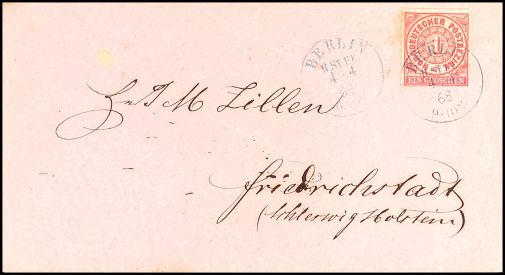 BERLIN
4 4
NORDDEUTSCHER POSTBEZIRK
1
EIN GROSCHEN
68
J M Lillen
Friedrichstadt
(Schleswig Holstein)